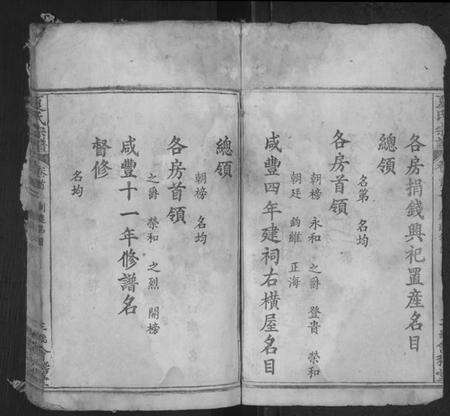 各房捐錢興祀置產名目
總領
名第 名均
各房首領
朝榜 永和 之爵 登貴 榮和
朝廷 鈞維 正海
咸豐四年建祠右橫屋名目
總領
朝榜 名均
各房首領
之爵 榮和 之烈 開榜
咸豐十一年修譜名
督修
名均
氏宗譜
卷首